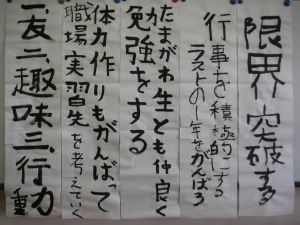 限界突破する
行事を積極的にする
ラストの1年をがんばろ
たまがわ生とも仲良く
勉強をする
体力作りもがんばって
職場実習先を考えていく
一、友二、趣味三、行力